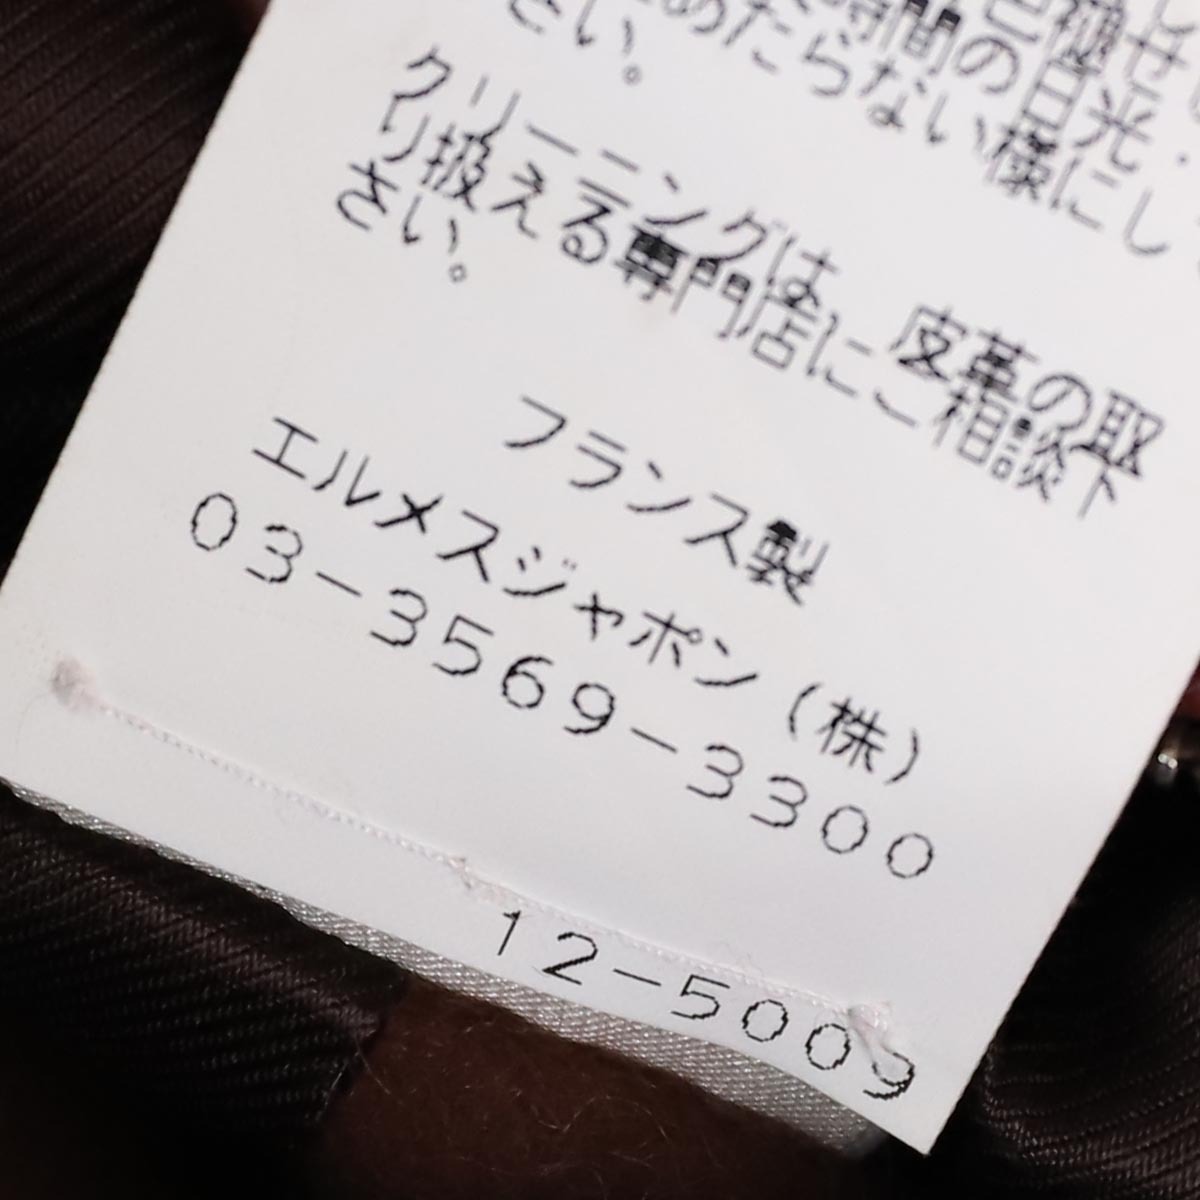 時間の日光・
めたらない様にし
さい。
クリーニングは、皮革の取
り扱える専門店にご相談下
さい。
フランス製
エルメスジャポン(株)
03-3569-3300
12-5009